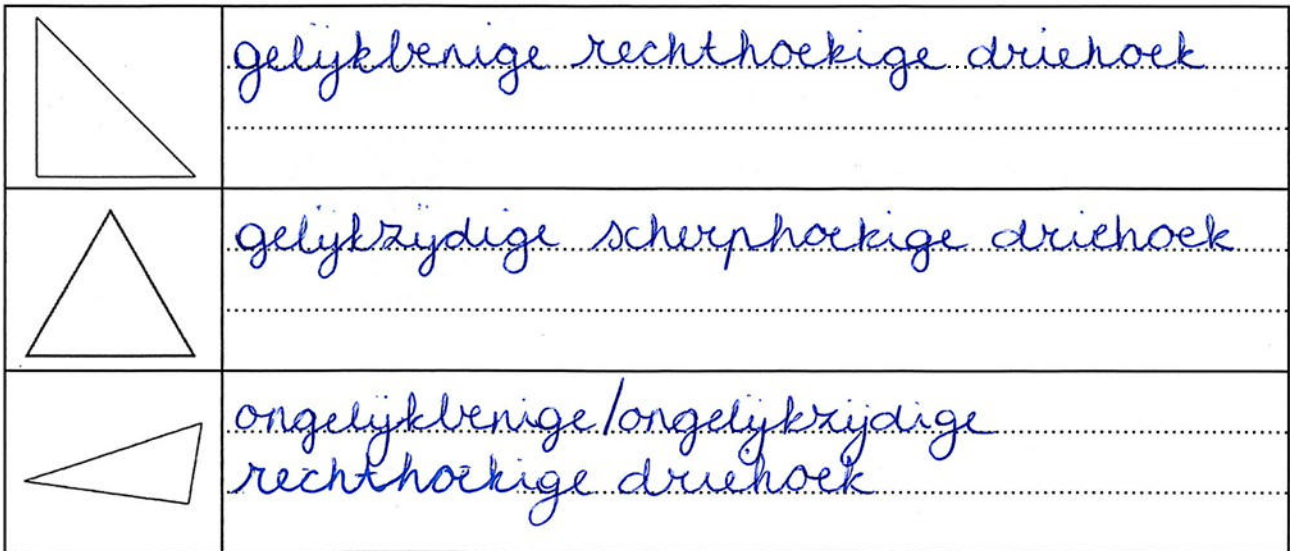 gelijkbenige rechthoekige driehoek
gelijkzijdige scherphoekige driehoek
ongelijkbenige/ongelijkzijdige
rechthoekige driehoek